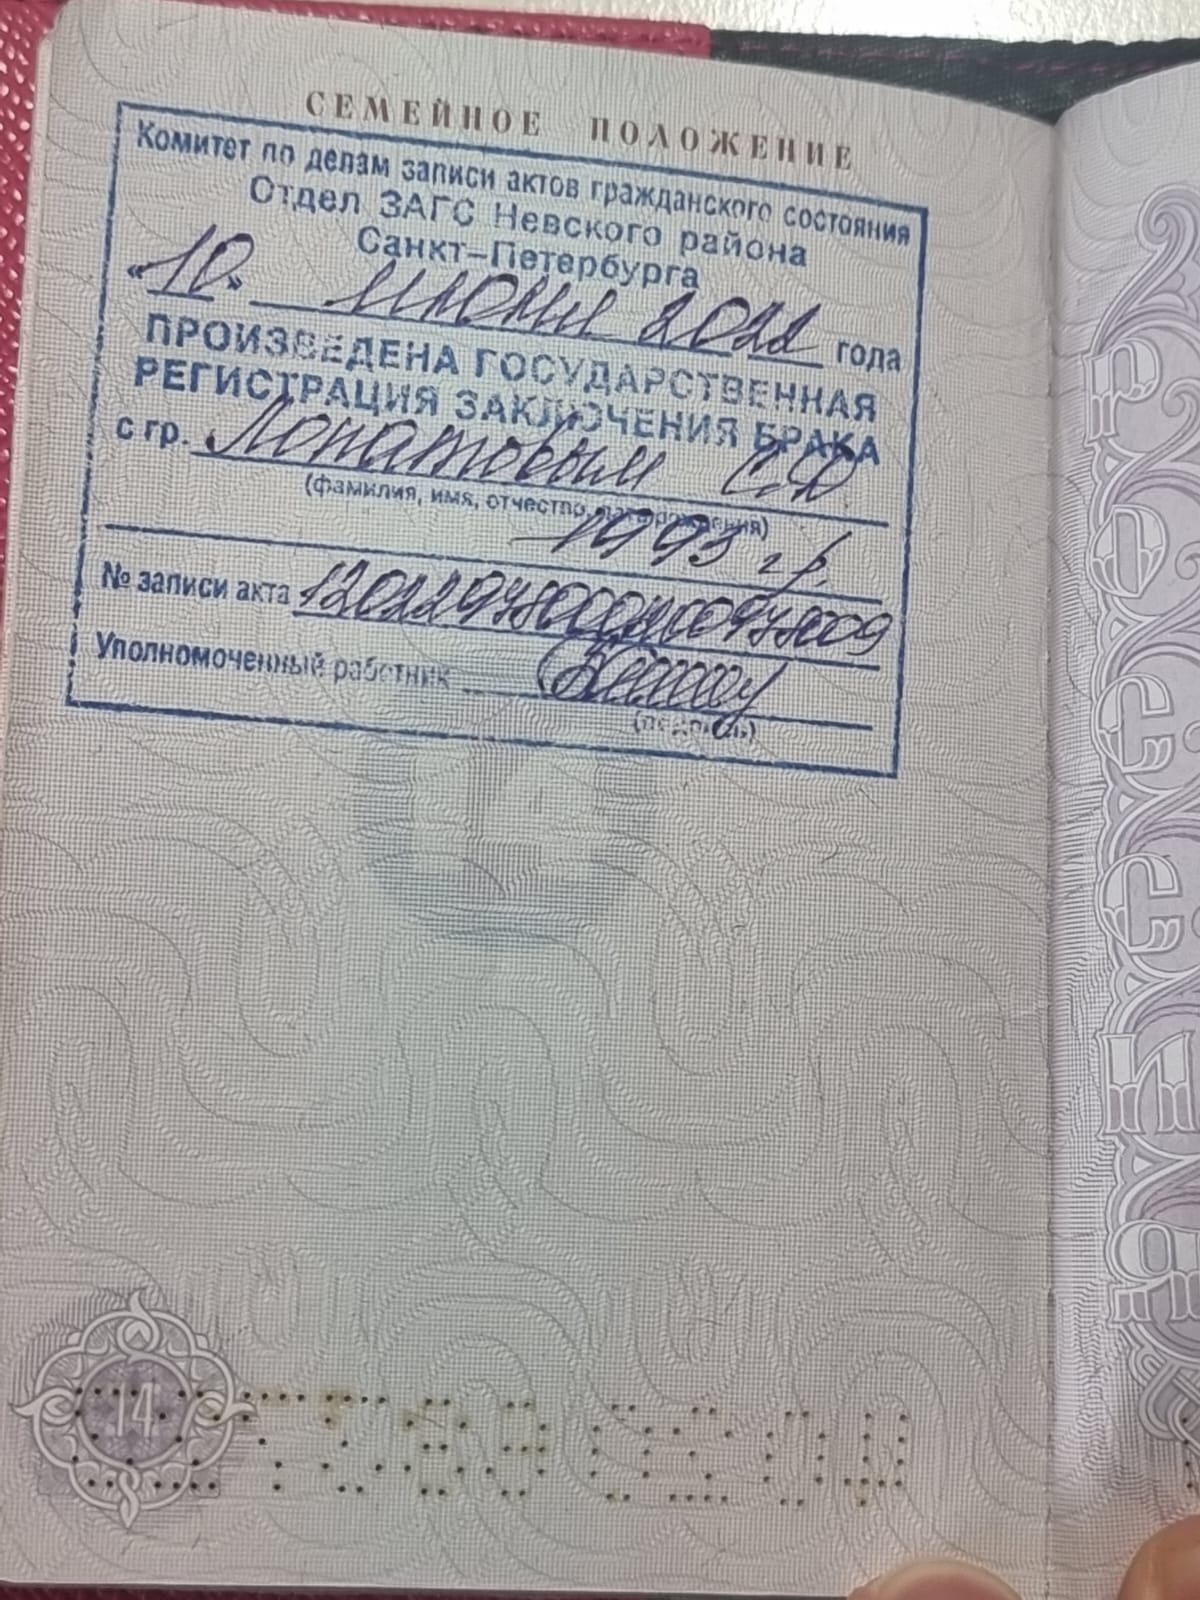 СЕМЕЙНОЕ ПОЛОЖЕНИЕ
Комитет по делам записи актов гражданского состояния
Отдел ЗАГС Невского района
Санкт-Петербурга
«10» июня 2022 года
ПРОИЗВЕДЕНА ГОСУДАРСТВЕННАЯ
РЕГИСТРАЦИЯ ЗАКЛЮЧЕНИЯ БРАКА
с гр. Лопатовым С.Ф.
(фамилия, имя, отчество, дата рождения)
1993 г.р.
№ записи акта
Уполномоченный работник
(подпись)
14
14
РОССИЯ